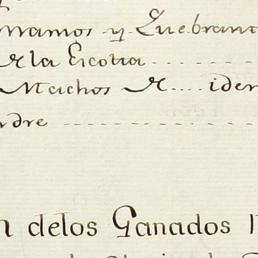 rramos y Quebrant
R la Escotta
Machos R .... iden
dre
n delos Ganados